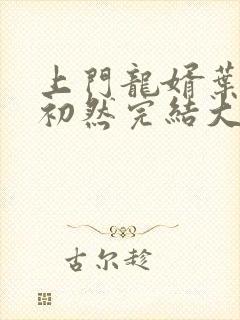 上門龍婿葉
初然完結大
古尔趁